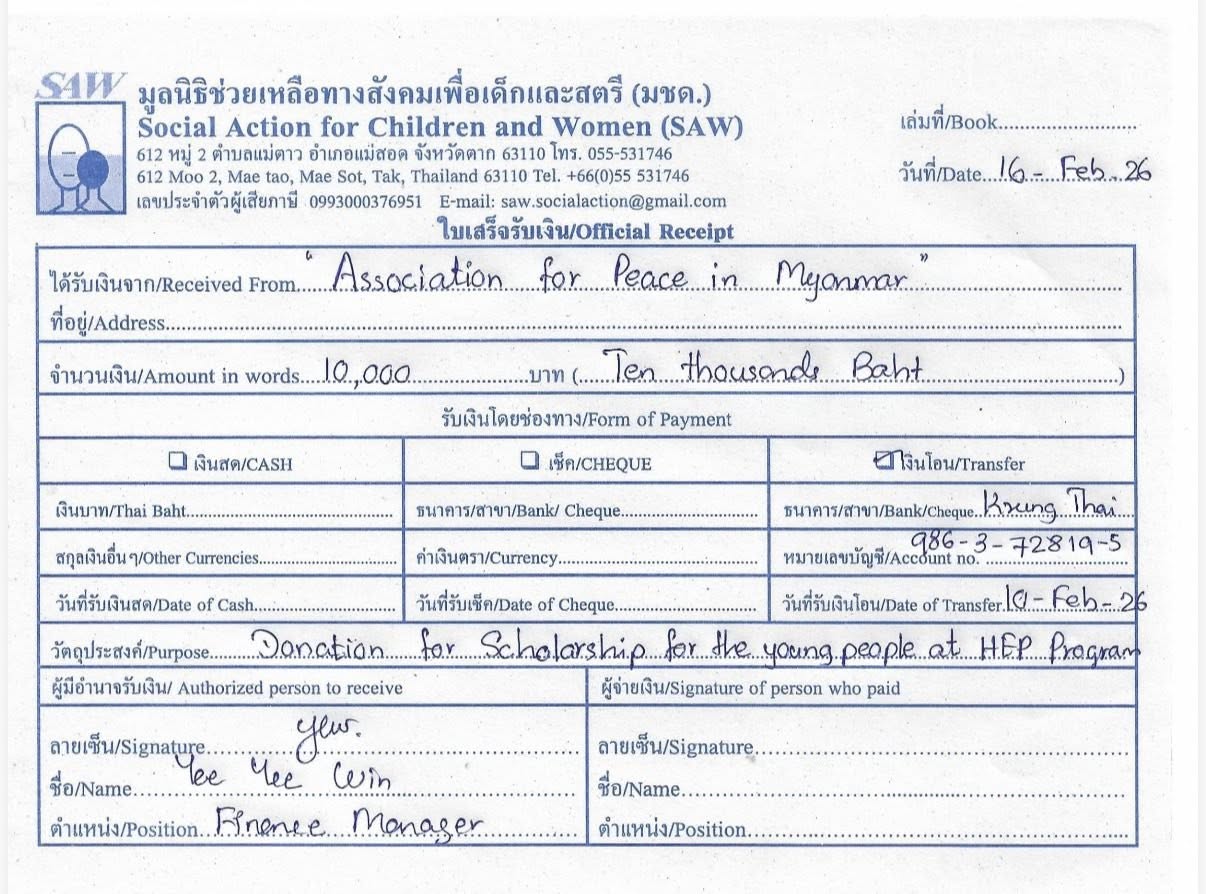 SAW
มูลนิธิช่วยเหลือทางสังคมเพื่อเด็กและสตรี (มชด.)
Social Action for Children and Women (SAW)
612 หมู่ 2 ตำบลแม่ตาว อำเภอแม่สอด จังหวัดตาก 63110 โทร. 055-531746
612 Moo 2, Mae tao, Mae Sot, Tak, Thailand 63110 Tel. +66(0)55 531746
เลขประจำตัวผู้เสียภาษี 0993000376951 E-mail: saw.socialaction@gmail.com
เล่มที่/Book
วันที่/Date 16 - Feb - 26
ใบเสร็จรับเงิน/Official Receipt
ได้รับเงินจาก/Received From "Association for Peace in Myanmar"
ที่อยู่/Address
จำนวนเงิน/Amount in words 10,000 บาท (Ten thousands Baht)
รับเงินโดยช่องทาง/Form of Payment
เงินสด/CASH เช็ค/CHEQUE เงินโอน/Transfer
เงินบาท/Thai Baht ธนาคาร/สาขา/Bank/ Cheque ธนาคาร/สาขา/Bank/Cheque Krung Thai
สกุลเงินอื่นๆ/Other Currencies ค่าเงินตรา/Currency หมายเลขบัญชี/Account no. 986-3-72819-5
วันที่รับเงินสด/Date of Cash วันที่รับเช็ค/Date of Cheque วันที่รับเงินโอน/Date of Transfer 10 - Feb - 26
วัตถุประสงค์/Purpose Donation for Scholarship for the young people at HEP Program
ผู้มีอำนาจรับเงิน/ Authorized person to receive ผู้จ่ายเงิน/Signature of person who paid
ลายเซ็น/Signature yew. ลายเซ็น/Signature
ชื่อ/Name Yee Yee Win ชื่อ/Name
ตำแหน่ง/Position Finance Manager ตำแหน่ง/Position